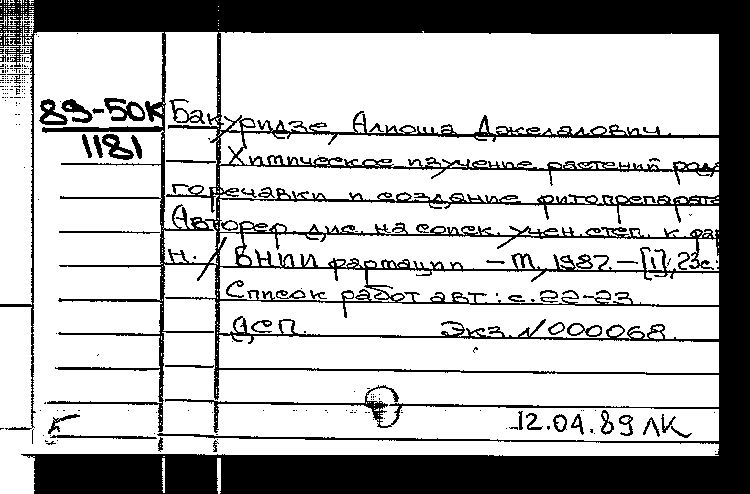 89-50К
1181
Бакуридзе, Алиоша Джелалович.
Химическое изучение растений рода
горечавки и создание фитопрепарата
Автореф. дис. на соиск. учен. степ. к. фар
н. / ВНИИ фармации – М, 1987. – [1], 23с.:
Список работ авт.: с. 22-23
ДСП. Экз. №000068.
12.04.89 ЛК